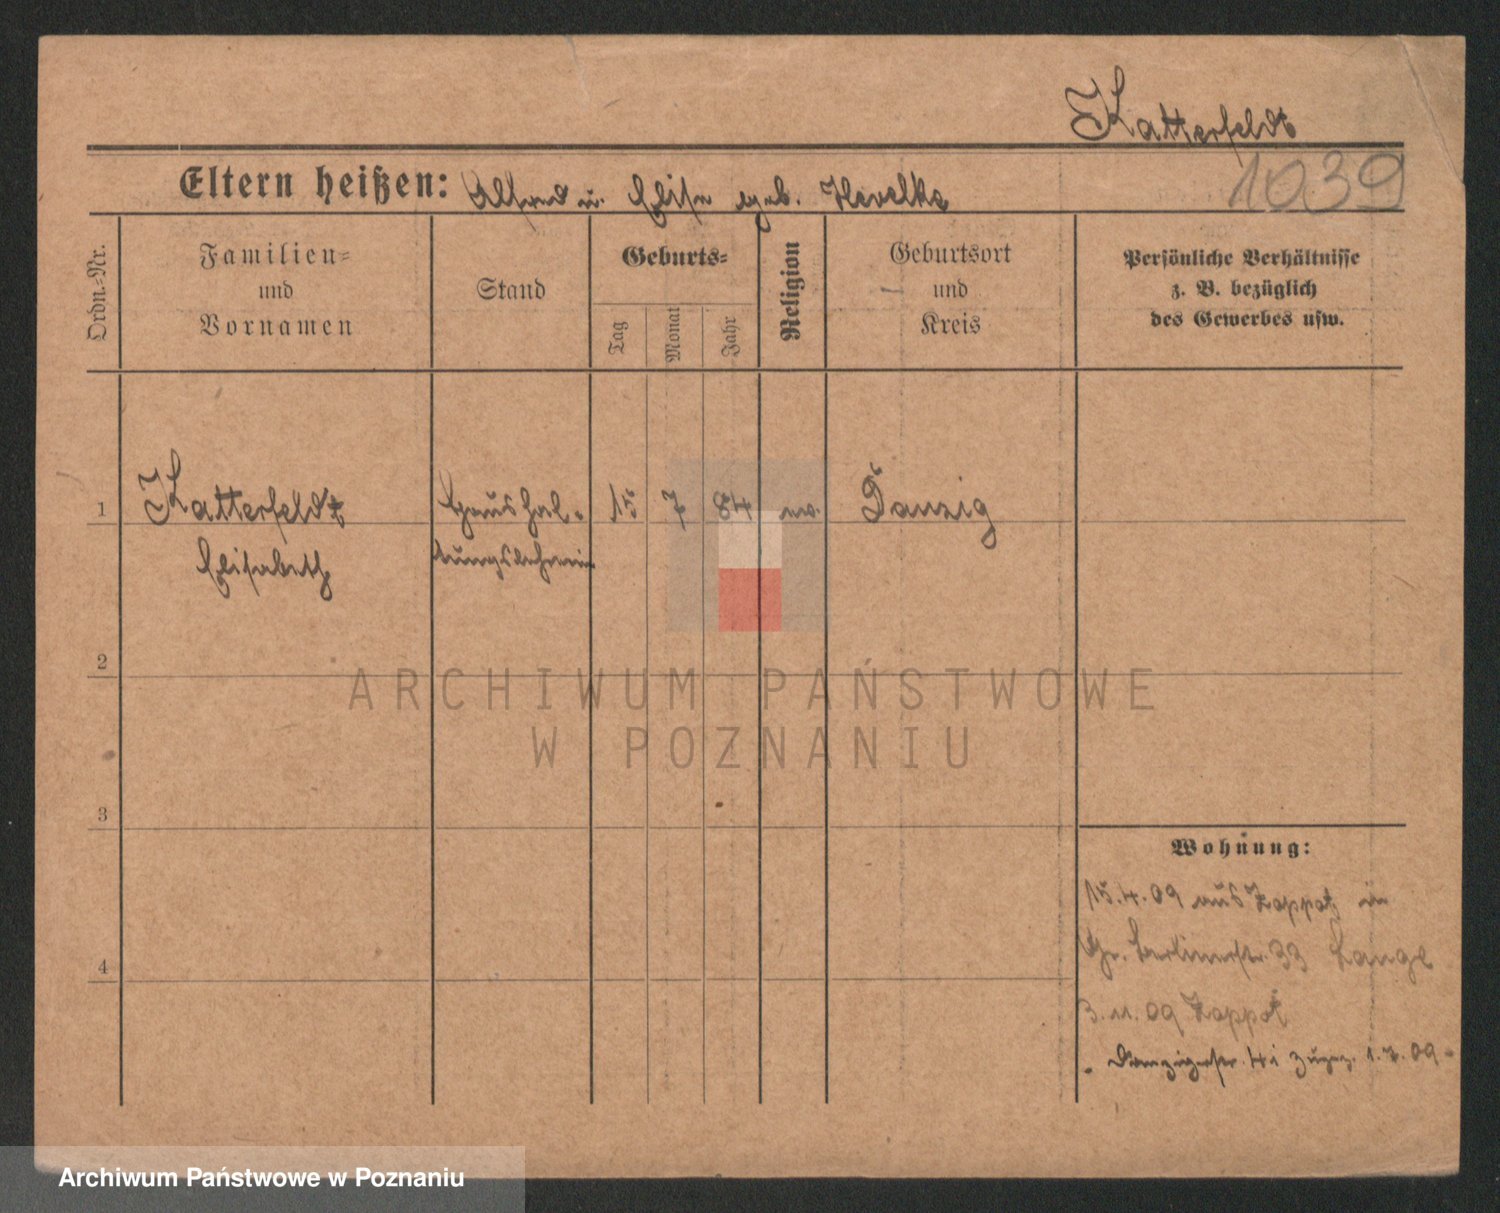 Katterfeldt
1039
Eltern heißen: Alfred u. Elise geb. Hevelke
Ordn.-Nr.
Familien=
und
Vornamen
Stand
Geburts=
Tag
Monat
Jahr
Religion
Geburtsort
und
Kreis
Persönliche Verhältnisse
z. B. bezüglich
des Gewerbes usw.
1 Katterfeldt Haushal- 15 7 84 ev. Danzig
Elisabeth tungslehrerin
2
ARCHIWUM PAŃSTWOWE
W POZNANIU
3
Wohnung:
15.4.09 aus Zoppot in
Gr. Berlinerstr. 33 Lange
4
3.11.09 Zoppot
Danzigerstr. 41 zugez. 1.7.09
Archiwum Państwowe w Poznaniu